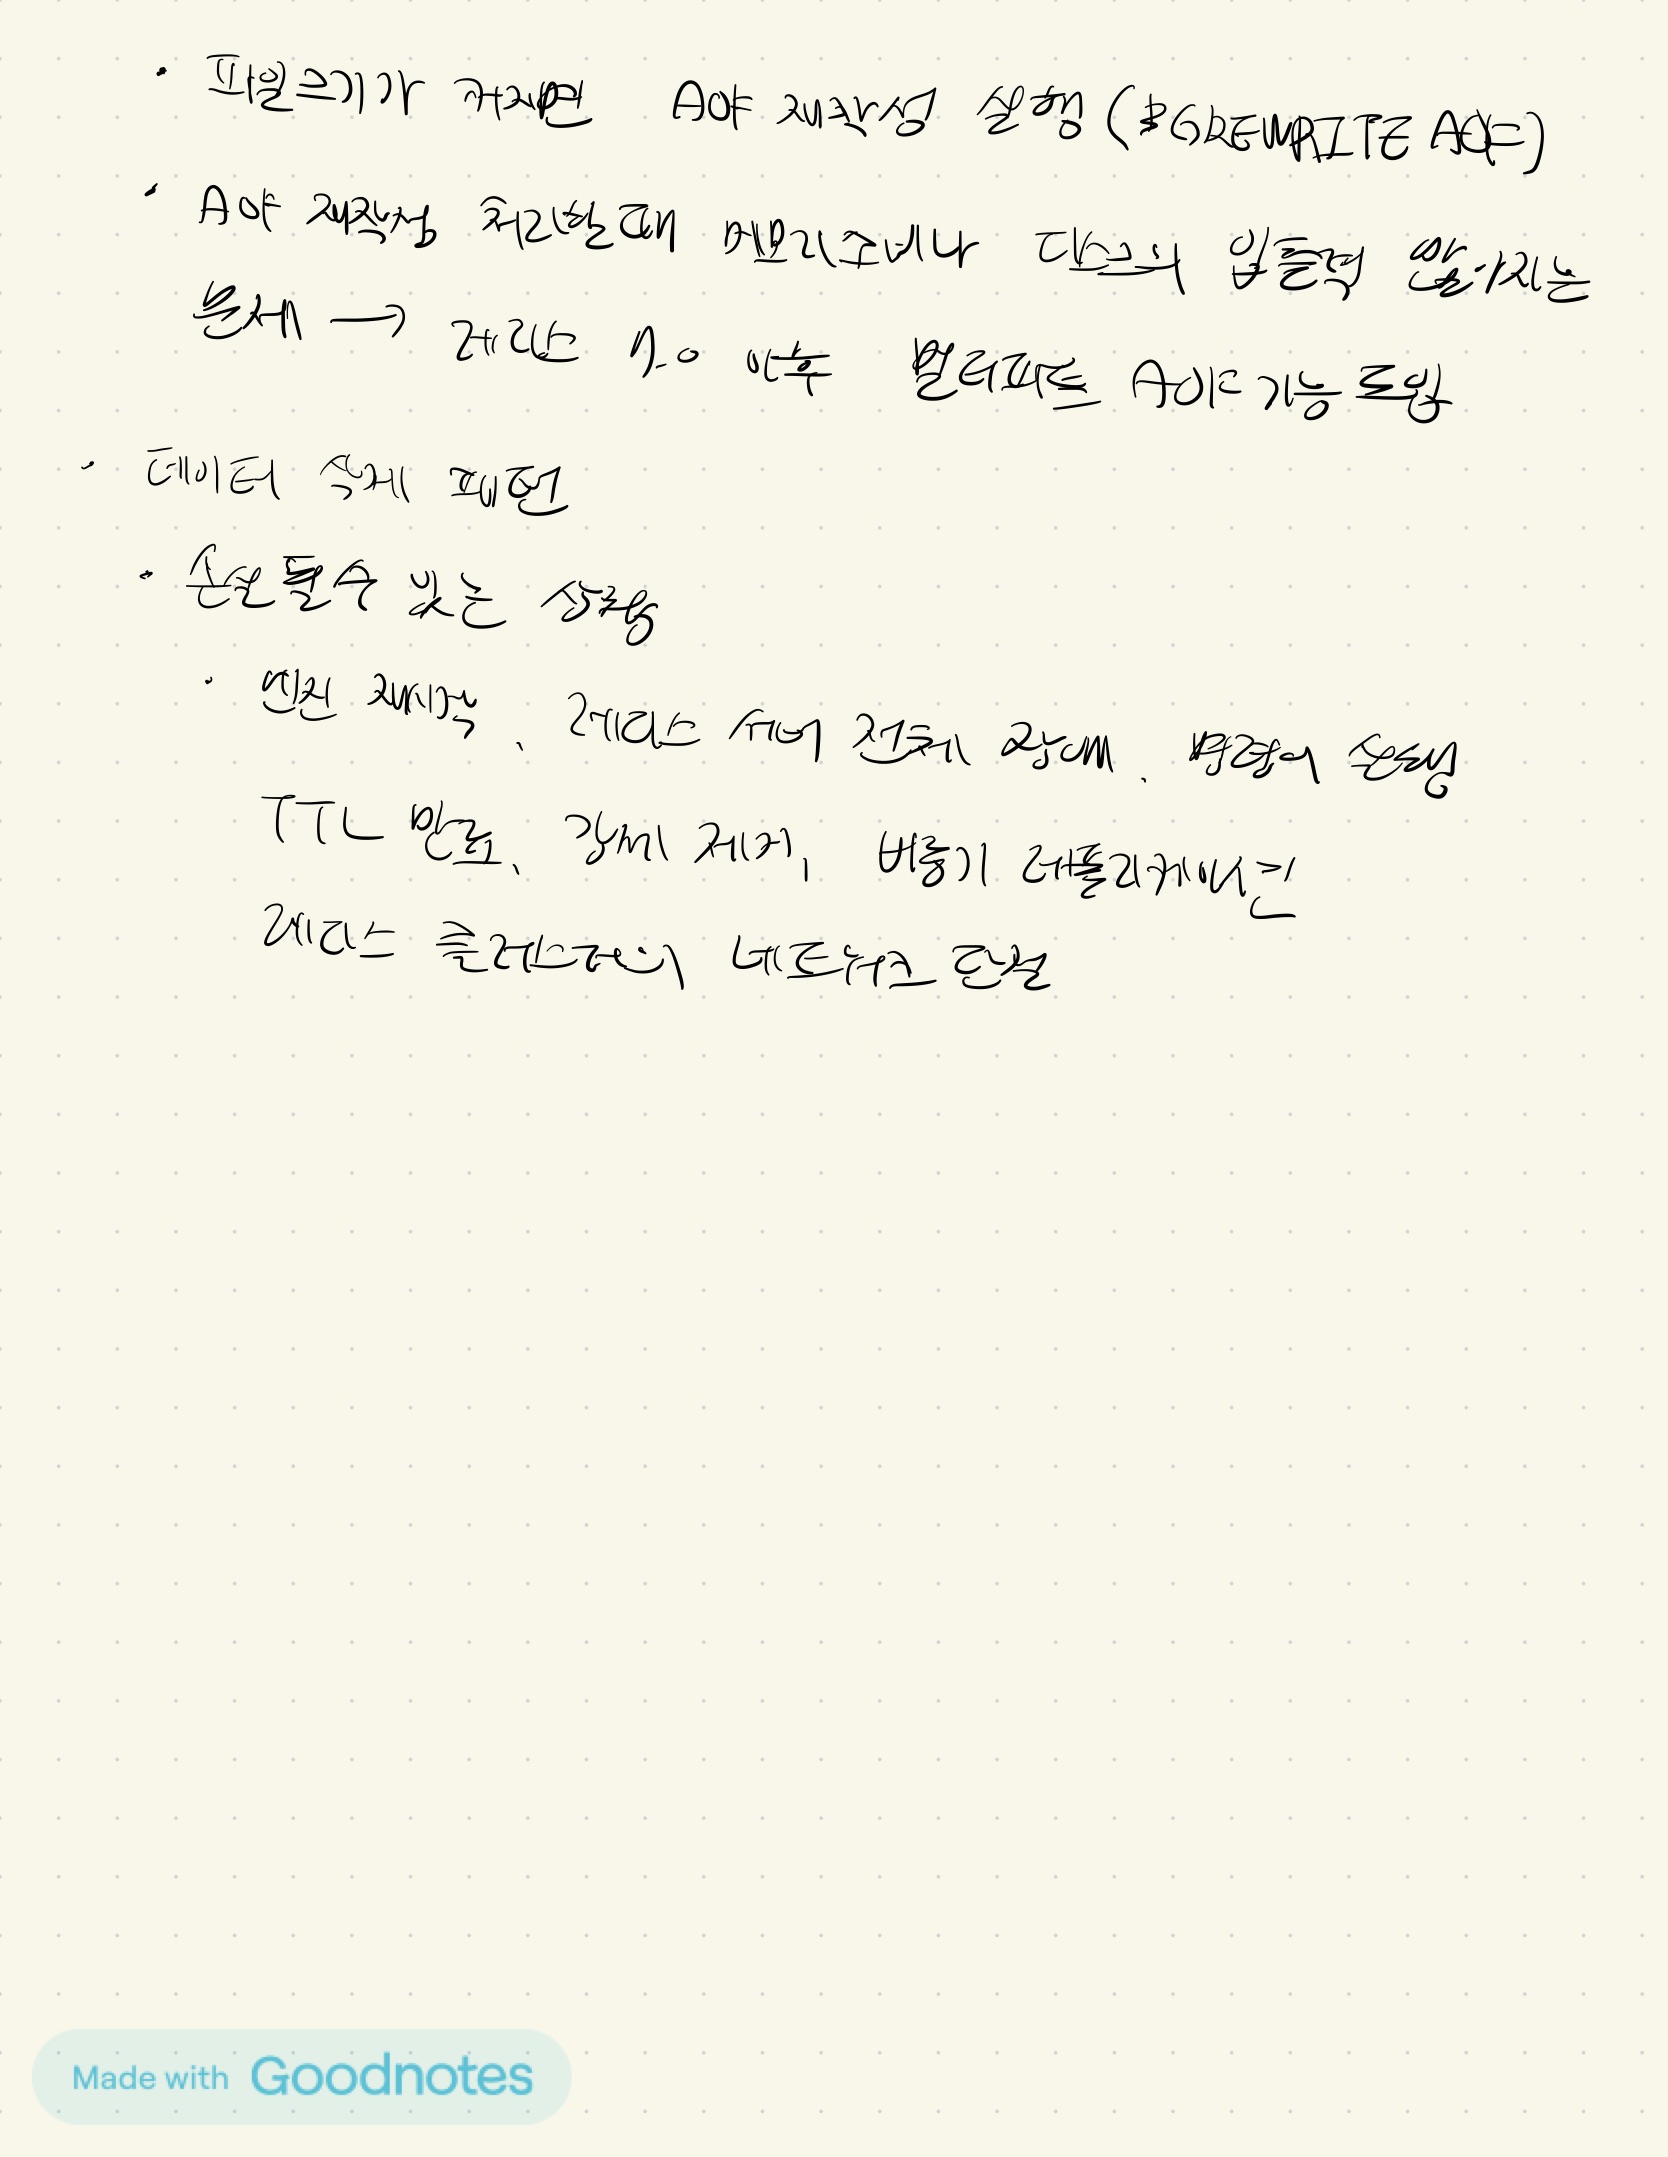 · 파일크기가 커지면 AOF 재작성 실행 (BGREWRITE AOF)
· AOF 재작성 처리할때 메모리소비나 디스크의 입출력 많아지는
문제 → 레디스 7.0 이후 멀티파트 AOF 기능 도입
· 데이터 삭제 패턴
· 손실 될수 있는 상황
· 엔진 재시작, 레디스 서버 전체 장애, 명령어 실행
TTL 만료, 강제 제거, 비동기 레플리케이션
레디스 클러스터의 네트워크 단절
Made with Goodnotes